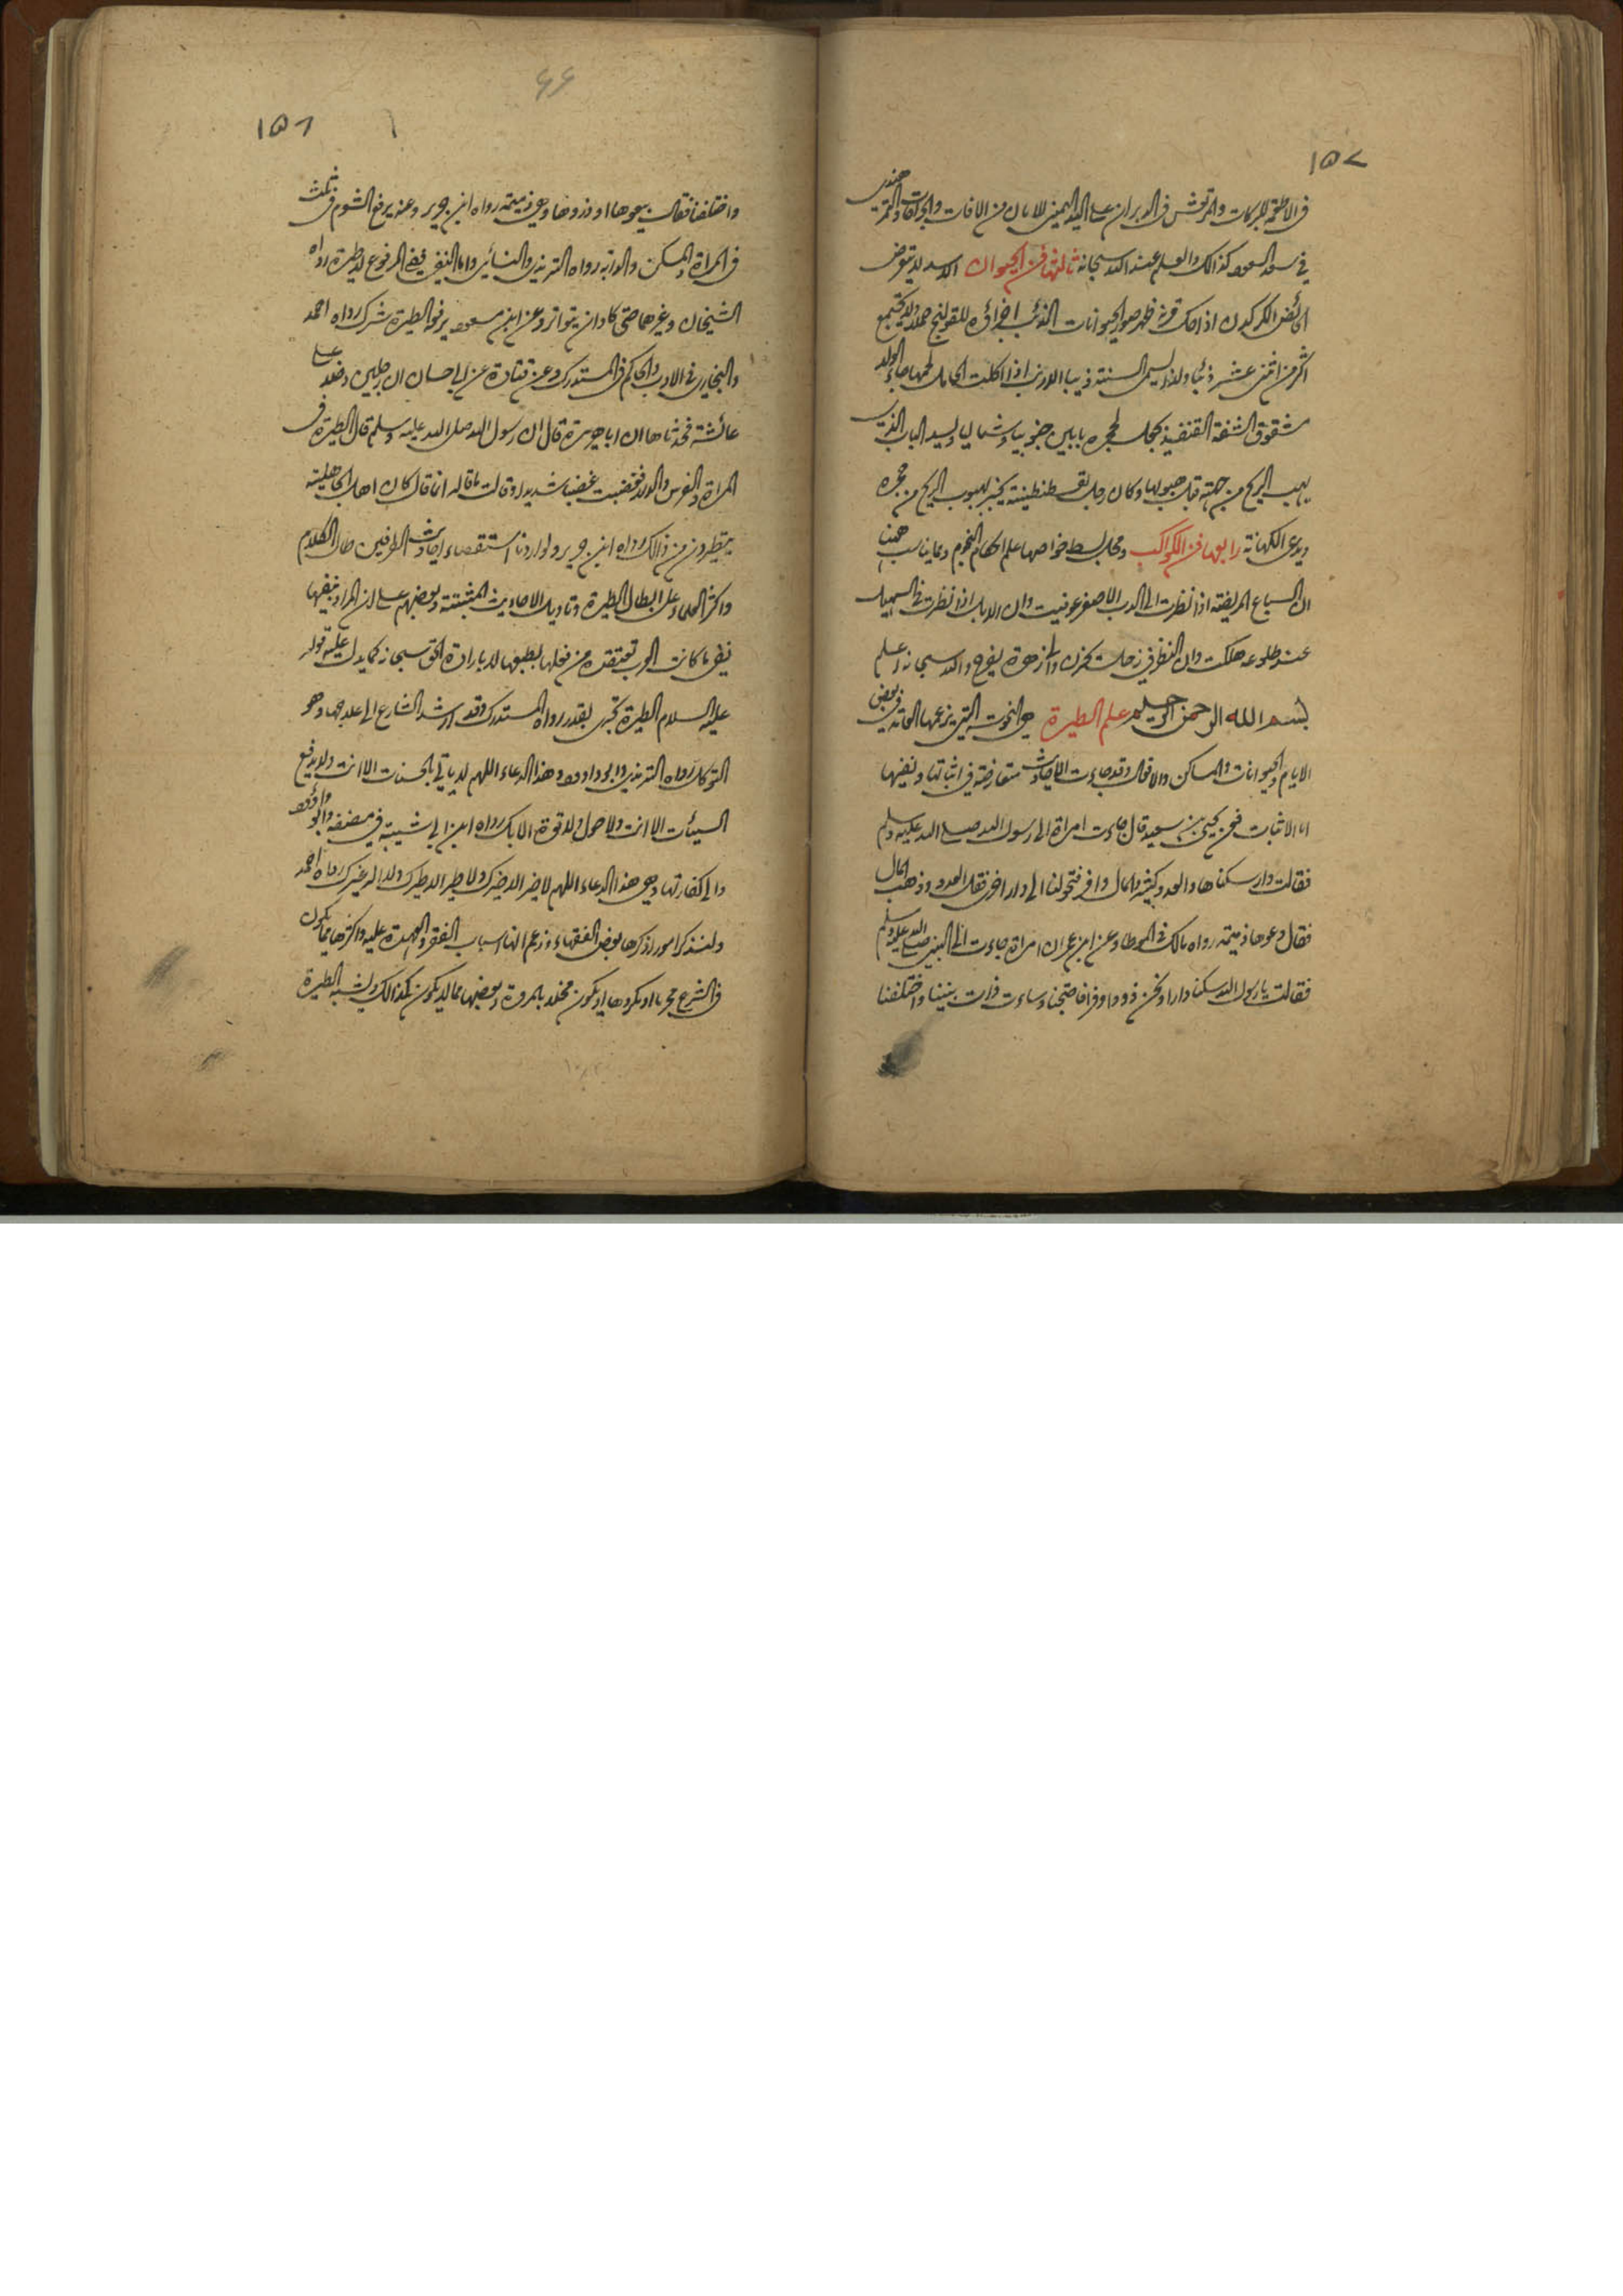 ١٥٧
فى الاطعمة للبركات والمرتعش فى الدبران على اليد اليمنى للامان من الافات والجراحات والقمر هندى
فى سعد السعود كذالك والعلم عند الله سبحانه ثالثها فن الحيوان الاسد لا يتعرض
الحائض الكركدن اذا حك قرنه ظهر صور الحيوانات الذئب اخراؤه للقولنج حملا ولا يجتمع
اكثر من اثنى عشر ذئبا ولذا يسمى السنة ذيبا الارنب اذا اكلت الحامل لحمها جاء الولد
مشقوق الشفة القنفيذ يجعل لحجره بابين جنوبيا وشماليا ويسد الباب الذى
يهب الريح من جهته قبل هبوبها وكان رجل بقسطنطينة يخبر بهبوب الريح من حجره
ويدعى الكهانة رابعها فن الكواكب ومحل بسط خواصها علم احكام النجوم ومما يناسب ههنا
ان السباع المريضة اذا نظرت الى الدب الاصغر عوفيت وان الابل اذا نظرت فى السهيل
عند طلوعه هلكت وان النظر فى زحل يحزن والزهرة يفرح والله سبحانه اعلم
بسم الله الرحمن الرحيم علم الطيرة هى النحوسة التى يزعمها العامة فى بعض
الايام والحيوانات والمساكن والاقوال وقد جاءت الاحاديث متعارضة فى اثباتها ونفيها
اما الاثبات فعن يحيى بن سعيد قال جاءت امراة الى رسول الله صلى الله عليه وسلم
فقالت دار سكناها والعدد كثير والمال وافر فتحولنا الى دار اخرى فقل العدد وذهب المال
فقال دعوها ذميمة رواه مالك فى الموطا وعن ابن عمر ان امراة جاءت الى النبى صلى الله عليه وسلم
فقالت يا رسول الله سكنا دارا ونحن ذوو وافر فاحتجنا وساءت ذات بيننا واختلفنا
١٥٦
٦٦
واختلفنا فقال بيعوها او ذروها وهى ذميمة رواه ابن جرير وعنه يرفع الشوم فى ثلث
فى المراة والمسكن والدابة رواه الترمذى والنسائى واما النفى ففى المرفوع لا طيرة رواه
الشيخان وغيرهما حتى كاد ان يتواتر وعن ابن مسعود يرفع الطيرة شرك رواه احمد
والبخارى فى الادب والحاكم فى المستدرك وعن قتادة عن ابى حسان ان رجلين دخلا على
عائشة فحدثاها ان ابا هريرة قال ان رسول الله صلى الله عليه وسلم قال الطيرة فى
المراة والفرس والدار فغضبت غضبا شديدا وقالت ما قاله انما قال كان اهل الجاهلية
يتطيرون من ذالك رواه ابن جرير ولو اردنا استقصاء احاديث الطرفين طال الكلام
واكثر العلماء على ابطال الطيرة وتاويل الاحاديث المثبتة وبعضهم على ان المراد بنفيها
نفى ما كانت العرب تعتقده من فعلها بطبعها لا بارادة الحق سبحانه كما يدل عليه قوله
عليه السلام الطيرة تجرى بقدر رواه المستدرك وقد ارشد الشارع الى علاجها وهو
التوكل رواه الترمذى وابو داود وهذا الدعاء اللهم لا ياتى بالحسنات الا انت ولا يدفع
السيئات الا انت ولا حول ولا قوة الا بك رواه ابن ابى شيبة فى مصنفه وابو داود
والى كفارتها وهى هذا الدعاء اللهم لا خير الا خيرك ولا طير الا طيرك ولا اله غيرك رواه احمد
ولنذكر امورا ذكرها بعض الفقهاء وزعم انها اسباب الفقر والعهدة عليه واكثرها مما يكون
فى الشرع محرما او مكروها او يكون مخلا بالمروة وبعضها مما لا يكون كذالك ويشبه الطيرة